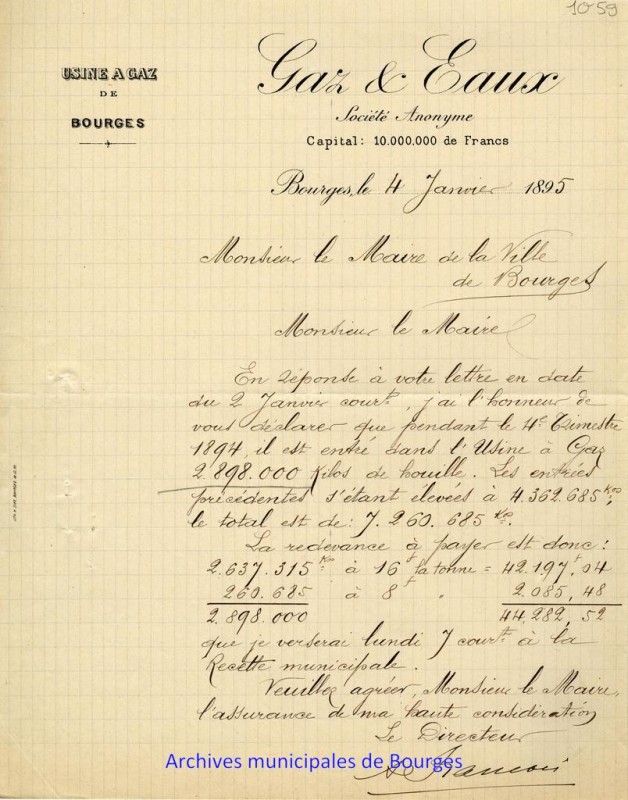 1059
USINE A GAZ
DE
BOURGES
Gaz & Eaux
Société Anonyme
Capital: 10.000.000 de Francs
Bourges, le 4 Janvier 1895
Monsieur le Maire de la Ville
de Bourges
Monsieur le Maire
En réponse à votre lettre en date
du 2 Janvier court, j'ai l'honneur de
vous déclarer que pendant le 4e Trimestre
1894, il est entré dans l'Usine à Gaz
2.898.000 Kilos de houille. Les entrées
précédentes s'étant élevées à 4.362.685 Kos,
le total est de: 7.260.685 Kos.
La redevance à payer est donc:
2.637.315 Kos à 16f la tonne = 42.197f,04
260.685 à 8f " 2.085,48
2.898.000 44.282,52
que je verserai lundi 7 court à la
Recette municipale.
Veuillez agréer, Monsieur le Maire,
l'assurance de ma haute considération
Le Directeur
Archives municipales de Bourges